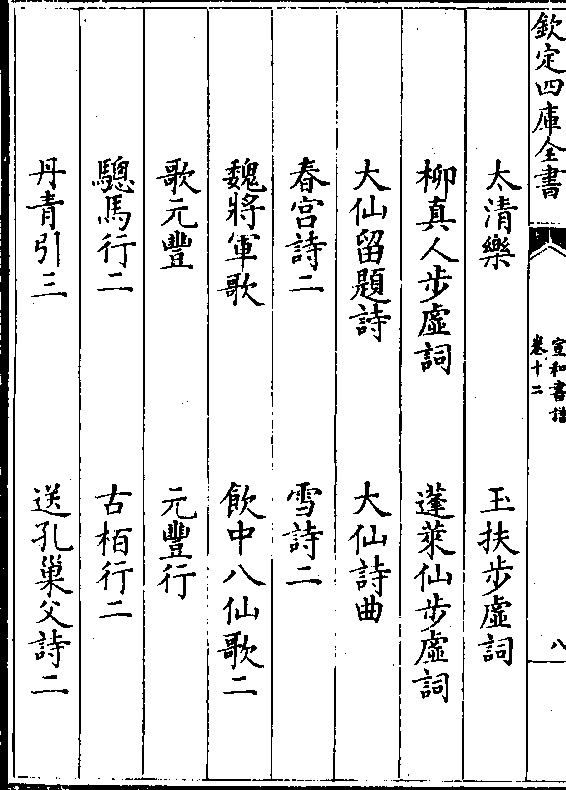 欽定四庫全書
宣和書譜
卷十二
八
太清樂
玉扶步虛詞
柳真人步虛詞
蓬萊仙步虛詞
大仙留題詩
大仙詩曲
春宮詩二
雪詩二
魏將軍歌
飲中八仙歌二
歌元豐
元豐行
驄馬行二
古栢行二
丹青引三
送孔巢父詩二